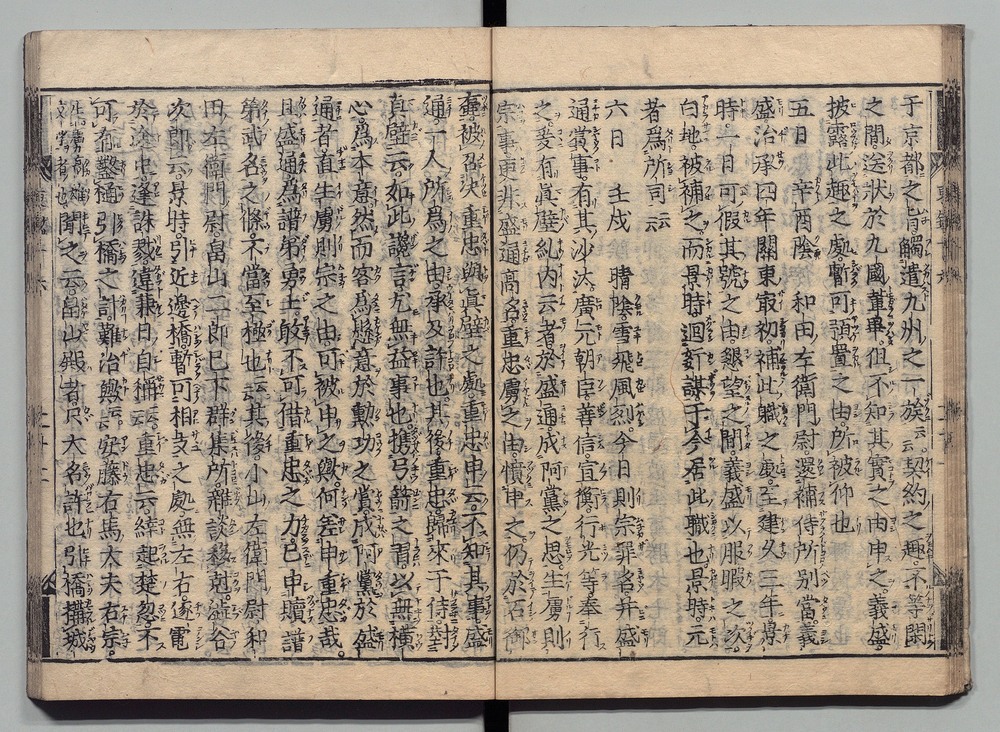 于京都之旨觸遣九州之一族云云契約之趣不等閑
之間送狀於九國輩畢但不知其實之由申之義盛
披露此趣之處暫可預置之由所被仰也
五日　辛酉陰　和田左衛門尉還補侍所別當義
盛治承四年關東最初補此職之處至建久三年景
時一日可假其號之由懇望之間義盛以服暇之次
白地被補之而景時廻奸謀于今居此職也景時元
者為所司云云
六日　壬戌　晴陰雪飛風烈今日則宗罪名幷盛
通賞事有其沙汰廣元朝臣善信宣衡行光等奉行
之爰有眞壁紀内云者於盛通成阿黨之思生虜則
宗事更非盛通高名重忠虜之由憤申之仍於石御
壺被召決重忠與眞壁之處重忠申云不知其事盛
通一人所為之由承及許也其後重忠歸來于侍對
眞壁云如此讒言尤無益事也携弓箭之習以無横
心為本意然而客為懸意於勲功之賞成阿黨於盛
通者直生虜則宗之由可被申之歟何差申重忠哉
且盛通為譜第勇士敢不可借重忠之力已申黷譜
第武名之條不當至極也云云其後小山左衛門尉和
田左衛門尉畠山二郎已下群集所雜談移剋澁谷
次郎云景時引近邊橋暫可相支之處無左右逐電
於途中逢誅戮違兼日自稱云云重忠云縡起楚忽不
可有鑿樋引橋之計難治歟云云安藤右馬大夫右宗
聞之云畠山殿者只大名許也引橋搆城